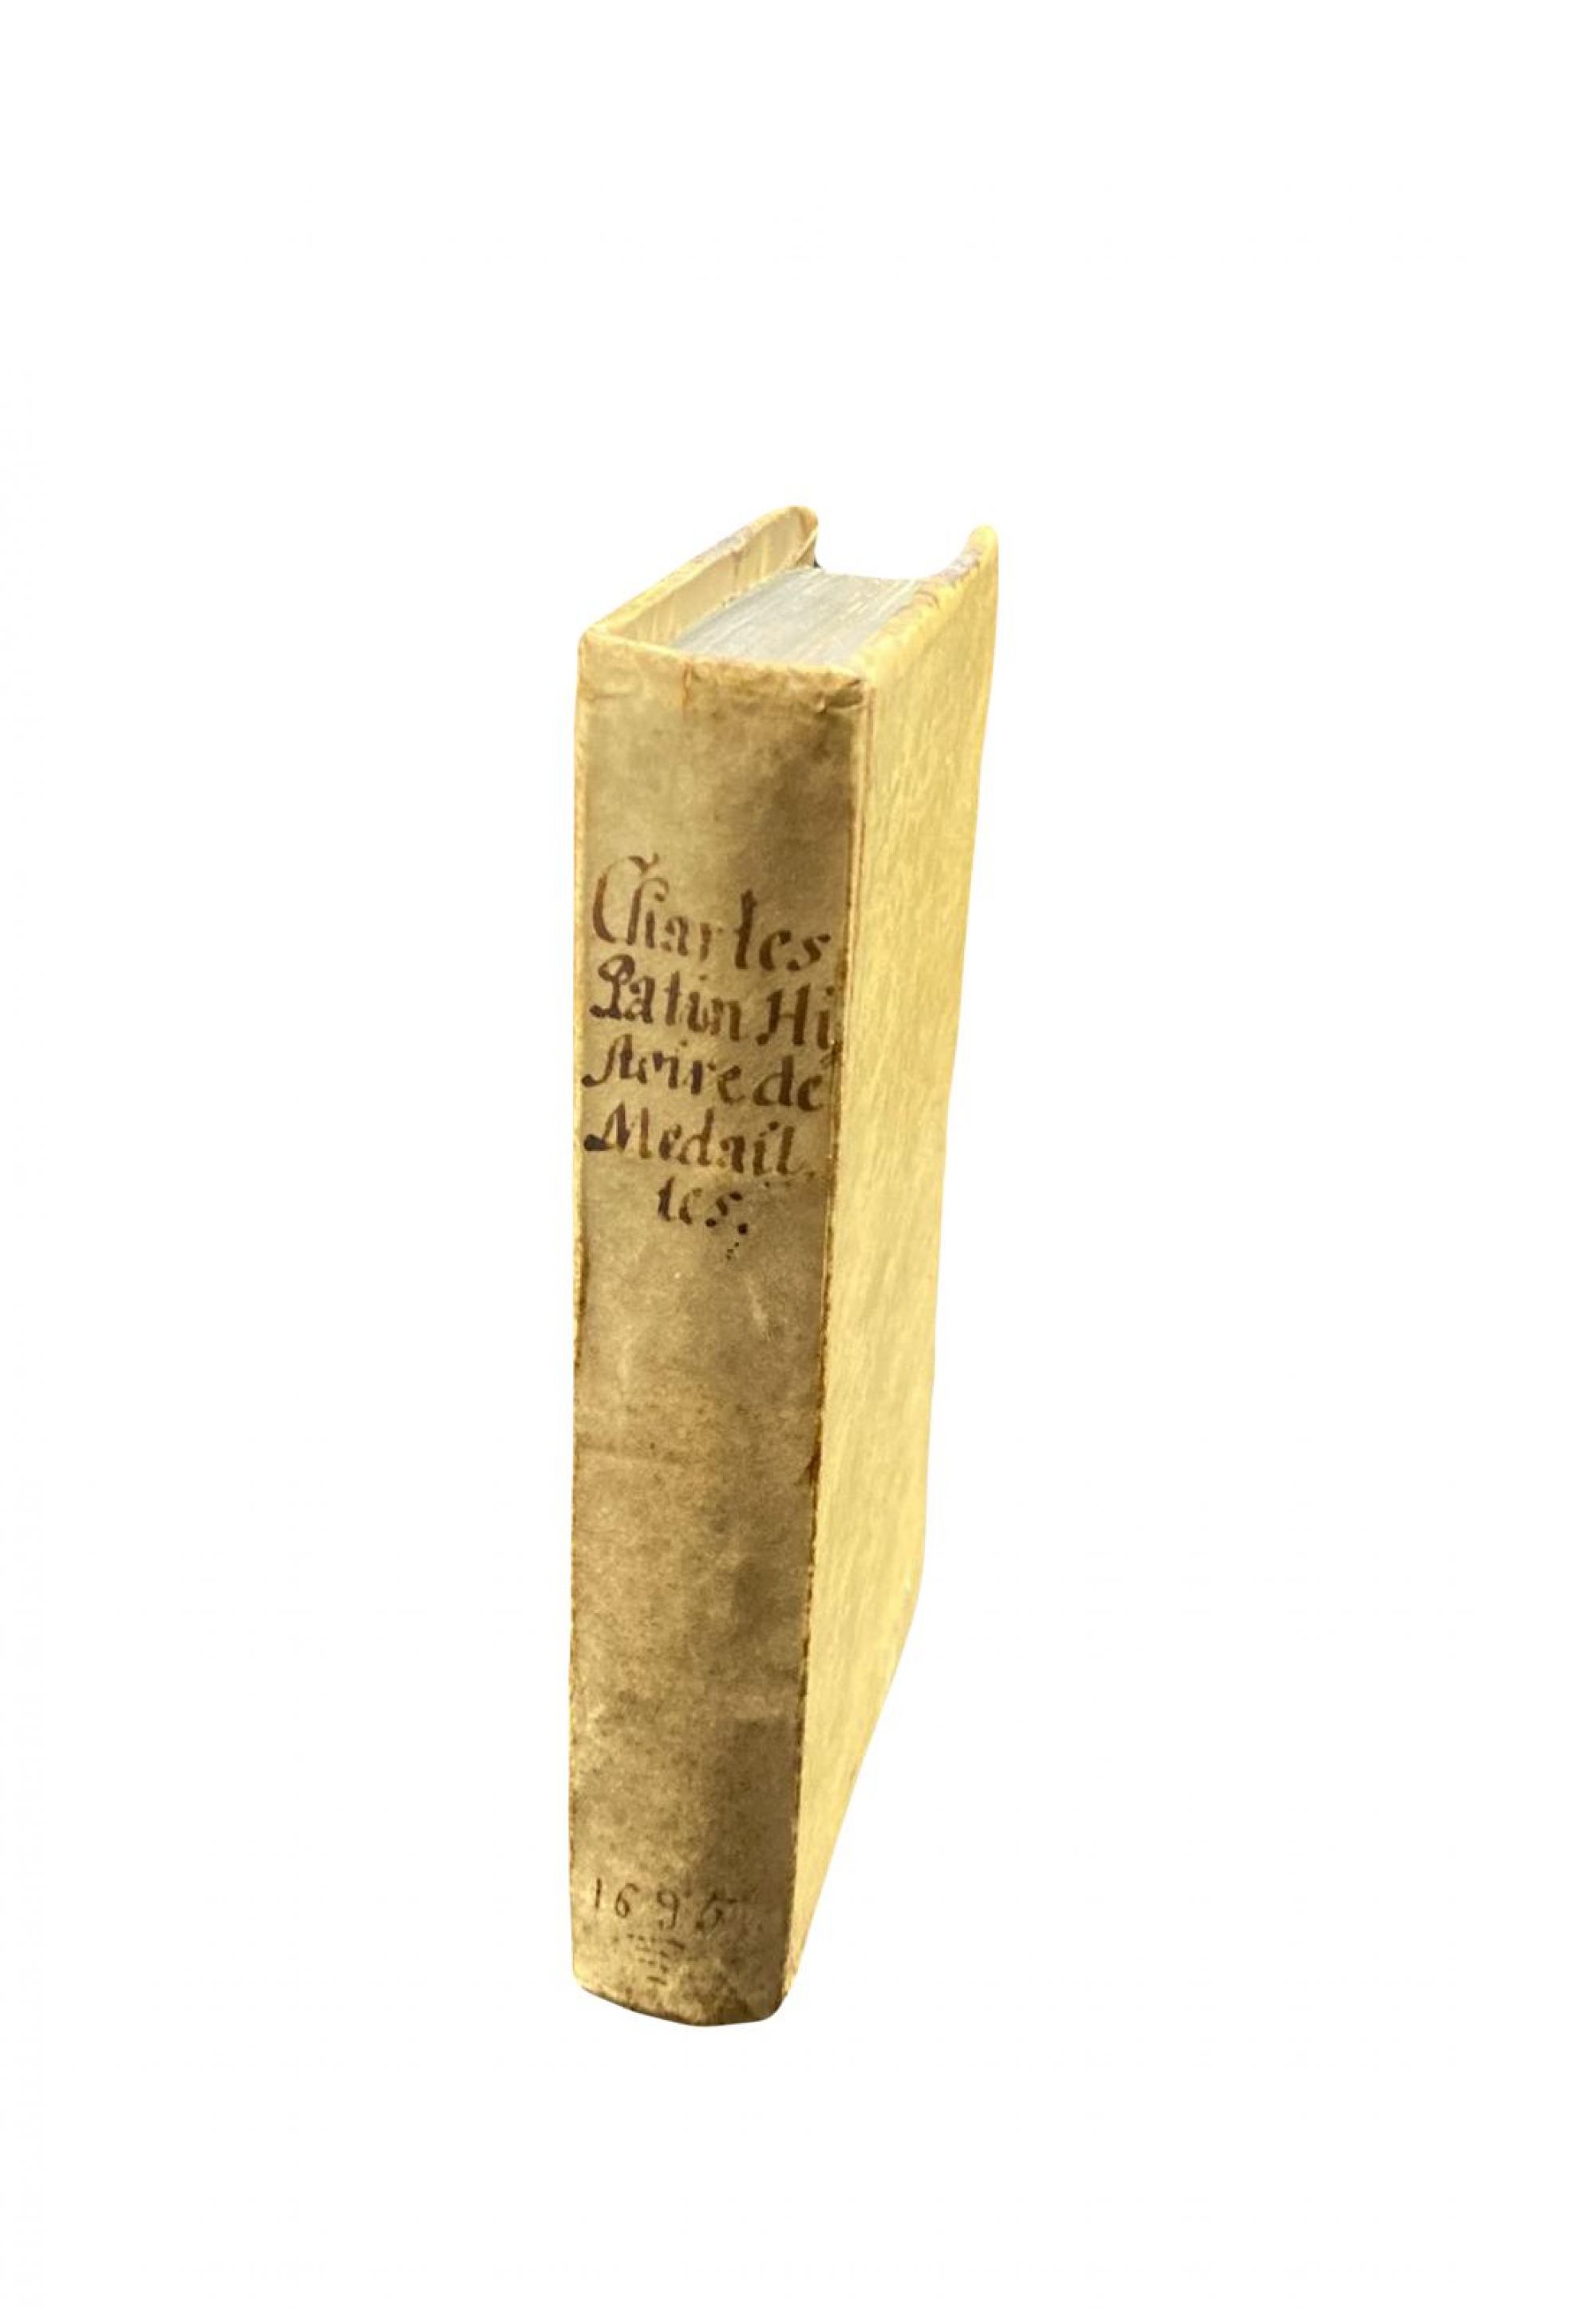 Charles
Patin Hi
stoire de
Medail
les.
1695